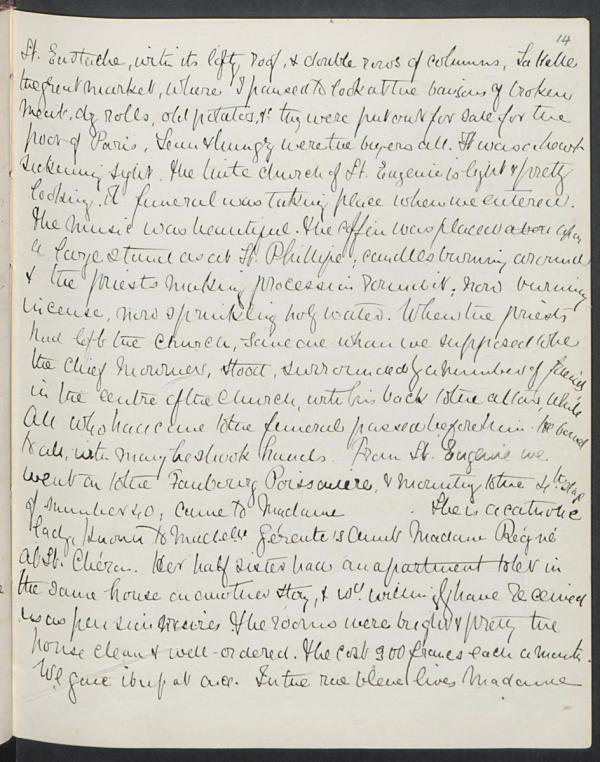 14
St. Eustache, with its lofty roof, & double rows of columns, La Halle
the great market, where I paused to look at the basins of broken
meat, dry rolls, old potatoes, &c they were put out for sale for the
poor of Paris, Lean & hungry were the buyers all. It was a heart
sickening sight. The little church of St. Eugenie is light & pretty
looking. A funeral was taking place when we entered.
The music was beautiful. The coffin was placed upon
a large stand as at St. Phillipe; candles burning around
& the priests making procession round it; now burning
incense, now sprinkling holy water. When the priests
had left the church, some one whom we supposed to be
the chief mourner, stood, surrounded by a number of friends
in the centre of the church, with his back to the altar, while
all who had come to the funeral passed before him. He bowed
to all, with many he shook hands. From St. Eugenie we
went on to the Faubourg Poissonière, & mounting to the 4th
of number 40, came to Madame . She is a catholic
lady, known to Gérente's aunt Madame Régné
at St. Chéron. Her half sister had an apartment to let in
the same house on another story, & wd. willingly have received
us as pensionnaires. The rooms were bright & pretty the
house clean & well-ordered. The cost 300 francs each a month.
We gave it up at once. In the rue bleue lives Madame